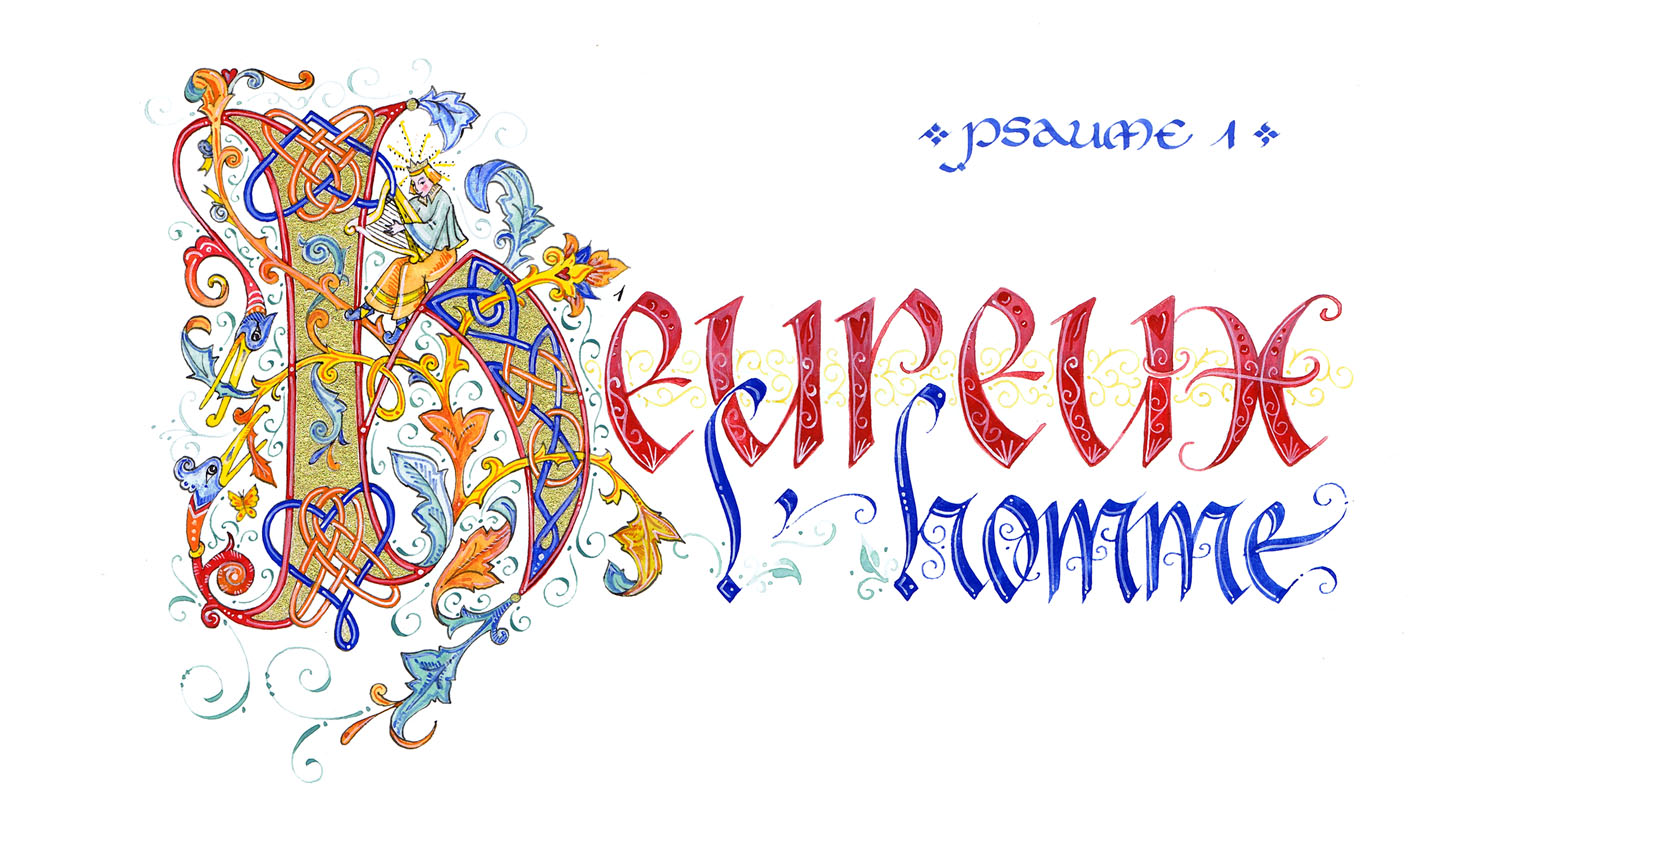 psaume 1
1 heureux
l'homme